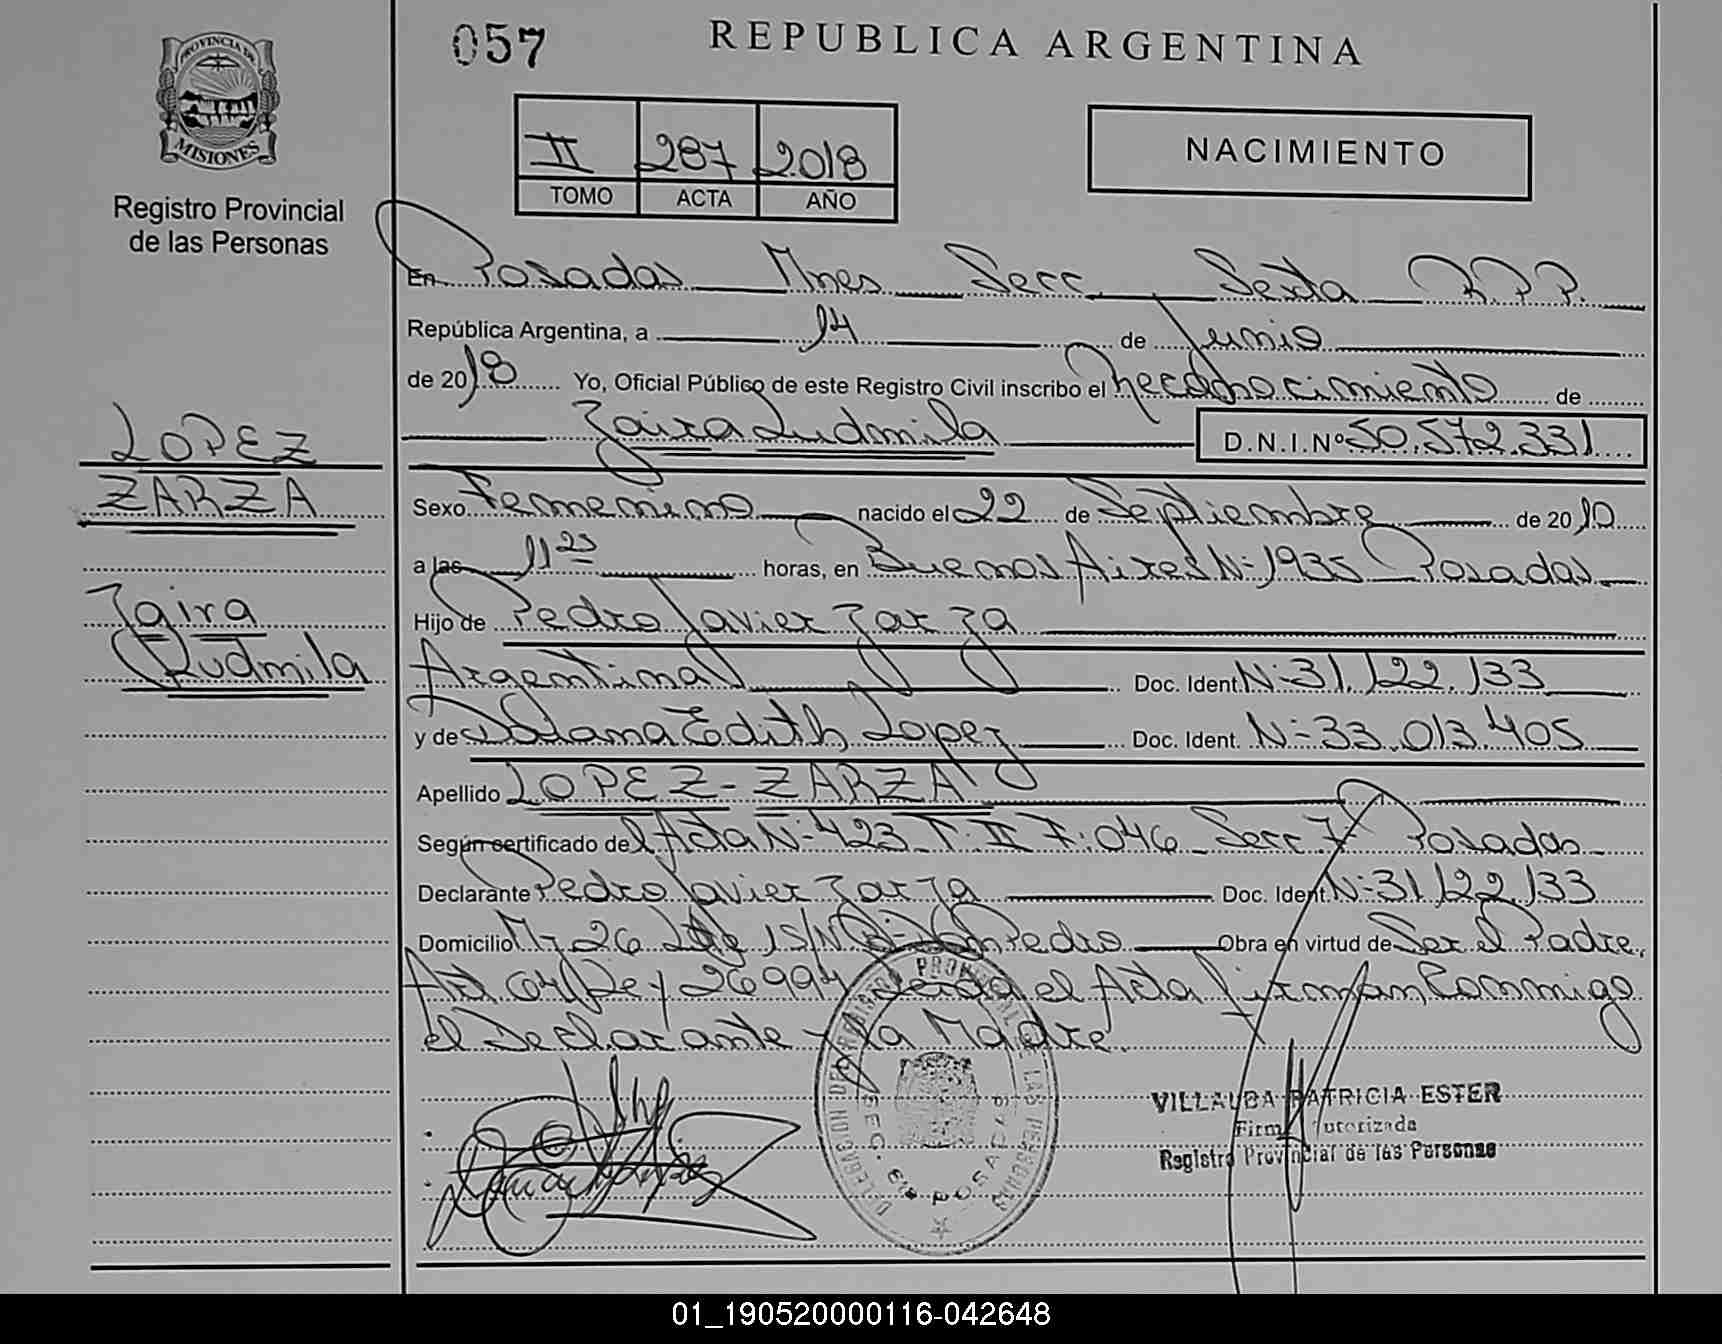 PROVINCIA DE
MISIONES
Registro Provincial
de las Personas
LOPEZ
ZARZA
Zaira
Ludmila
057
REPUBLICA ARGENTINA
II 287 2018
TOMO ACTA AÑO
NACIMIENTO
En Posadas Mnes Secc. Sexta R.P.P.
República Argentina, a 14 de Junio
de 2018 Yo, Oficial Público de este Registro Civil inscribo el Reconocimiento de
Zaira Ludmila D.N.I.Nº 50.572.331
Sexo Femenino nacido el 22 de Septiembre de 2010
a las 11 25 horas, en Buenos Aires Nº 1935 Posadas
Hijo de Pedro Javier Zarza
Argentina Doc. Ident. Nº 31.122.133
y de Edith Lopez Doc. Ident. Nº 33.013.405
Apellido LOPEZ - ZARZA
Según certificado del Acta Nº 423 T: II F: 046 Secc 7º Posadas
Declarante Pedro Javier Zarza Doc. Ident. Nº 31.122.133
Domicilio Mz 26 Lote 15 Pedro Obra en virtud de Ser el Padre,
Art Ley 26994 el Acta firman Conmigo
el Declarante y la Madre.
DELEGACION DEL REGISTRO PROVINCIAL DE LAS PERSONAS
SEC. 6ta POSADAS
VILLALBA PATRICIA ESTER
Firma Autorizada
Registro Provincial de las Personas
01_190520000116-042648